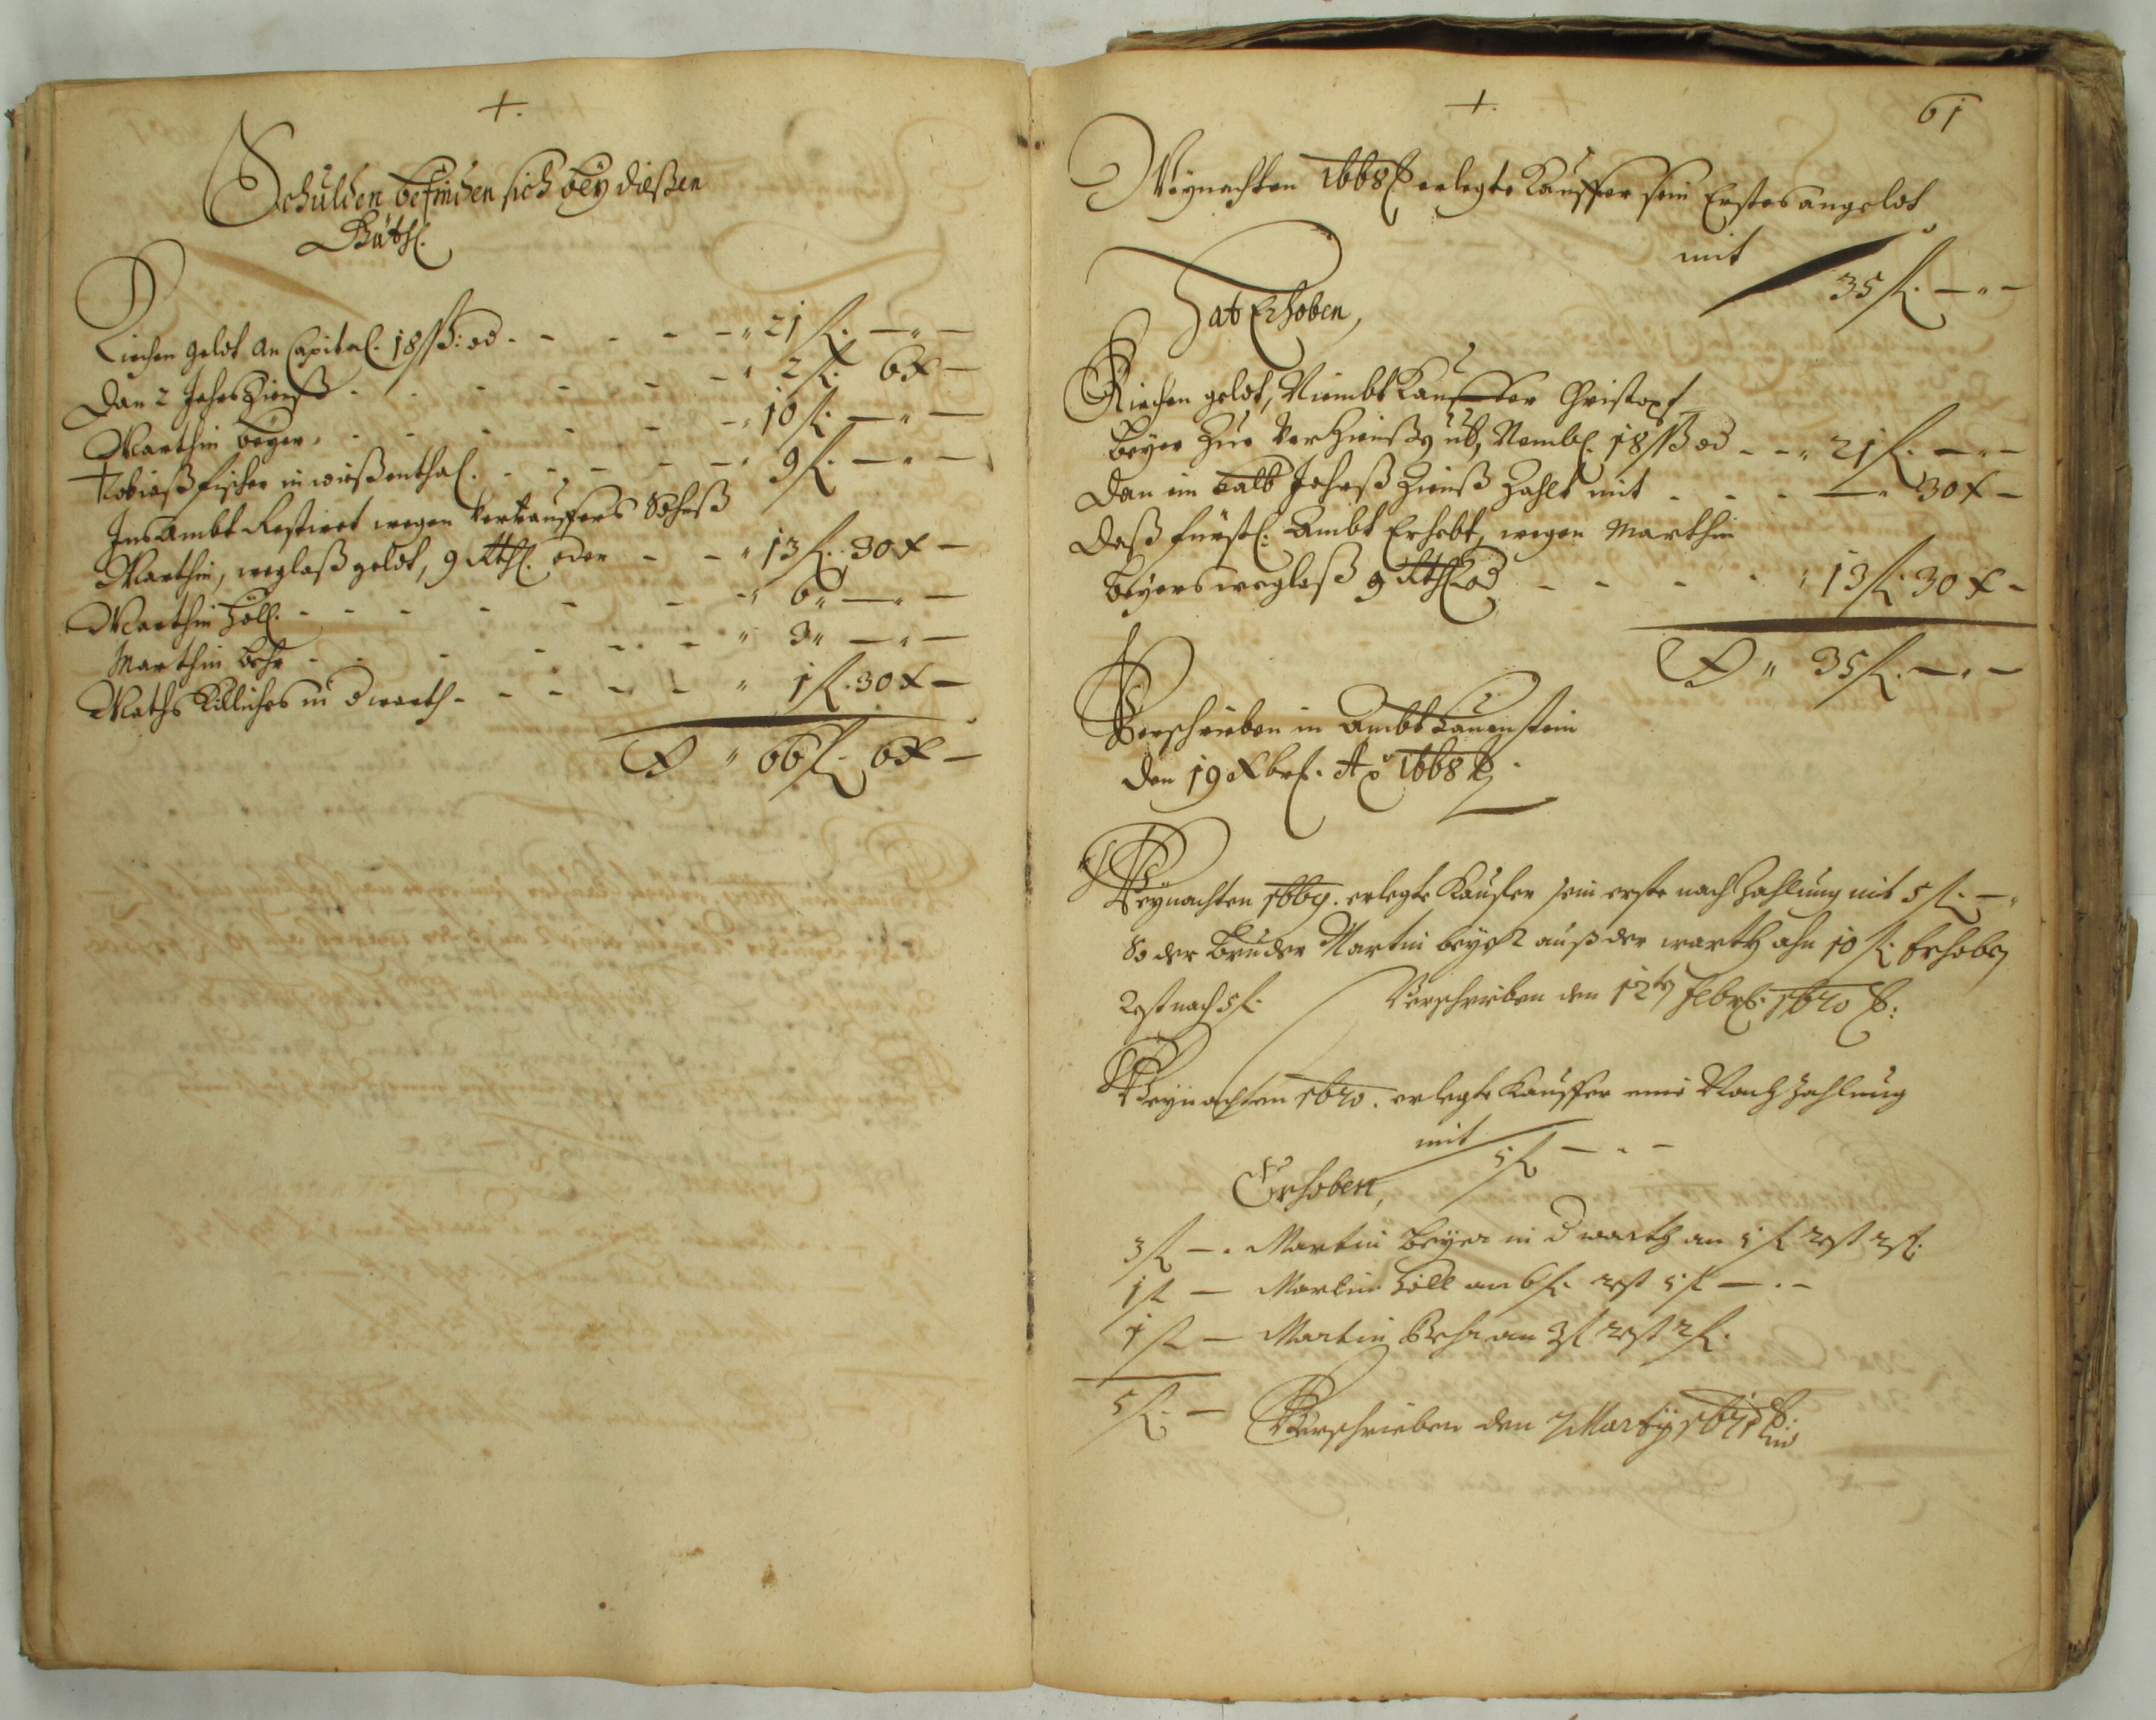 +.
Schulden befinden sich bey dießen
Güthl.
Kirchen geldt an Capital. 18 ſß: od - - - - " 21 fl. — " —
Dan 2 Jahrs Zienß - - - - - " 2 fl. 6 x —
Marthin Beyer. - - - - - " 10 fl. — " —
+ Tobiaß Fischer in wießenthal. - - - - " 9 fl. — " —
Ins Ambt Restiret wegen Verkauffers Sohnß
Marthin, weglaß geldt, 9 Rthl. oder - - " 13 fl. 30 x —
Marthin Höll. - - - - - - " 6 " — " —
Marthin Behr - - - - - - " 3 " — " —
Mathß Killiches in d warth - - - - - " 1 fl. 30 x —
" 66 fl. 6 x —
+.
61
Weynachten 1668 erlegte Kauffer sein Erstes angeldt
mit 35 fl. — " —
Hat Erhoben,
Kirchen geldt, Nimbt Kauffer Christoph
Beyer Zue Verzienßen üb, Nembl. 18 ſß od - - " 21 fl. — " —
Dan ein halb Jahrß Zienß Zahlt mit - - - — " 30 x —
Daß fürstl: Ambt Erhebt, wegen Marthin
Beyers weglaß 9 Rthl od - - - - " 13 fl. 30 x —
" 35 fl. — " —
Verschrieben in Ambt Lauenstein
den 19 Xbrl. Ao 1668
Weynachten 1669. erlegte Kaufer sein erste nach Zahlung mit 5 fl. — "
So der Bruder Martin beyer auß der warth ahn 10 fl. Erhoben
Rest nach 5 fl. Verschrieben den 12ten Febr. 1670
Weynachten 1670. erlegte Kauffer eine Nach Zahlung
mit 5 fl — " —
Erhoben,
3 fl — . Martin Beyer in d warth an 5 fl rest 2 fl.
1 fl — Martin Höll an 6 fl. rest 5 fl — . —
1 fl — Martin Behr an 3 fl rest 2 fl.
5 fl. — Verschrieben den 7 Martij 1671